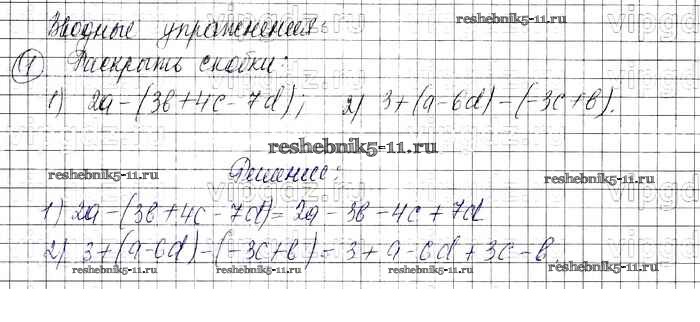 reshebnik5-11.ru
vipgdz.ru
Вводные упражнения:
① Раскрыть скобки:
1) 2a-(3b+4c-7d); 2) 3+(a-6d)-(-3c+b).
reshebnik5-11.ru
Решение:
reshebnik5-11.ru reshebnik5-11.ru
vipgdz.ru
1) 2a-(3b+4c-7d)=2a-3b-4c+7d
2) 3+(a-6d)-(-3c+b)=3+a-6d+3c-b
reshebnik5-11.ru reshebnik5-11.ru reshebnik5-11.ru